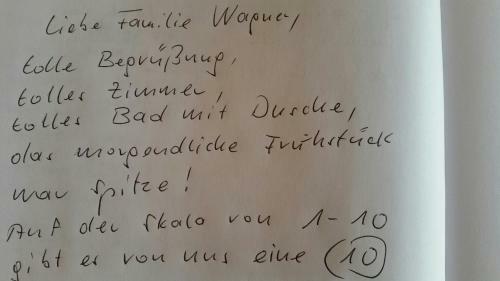 Liebe Familie Wagner,
tolle Begrüßung,
tolles Zimmer,
tolles Bad mit Dusche,
das morgendliche Frühstück
war spitze!
Auf der Skala von 1-10
gibt es von uns eine 10